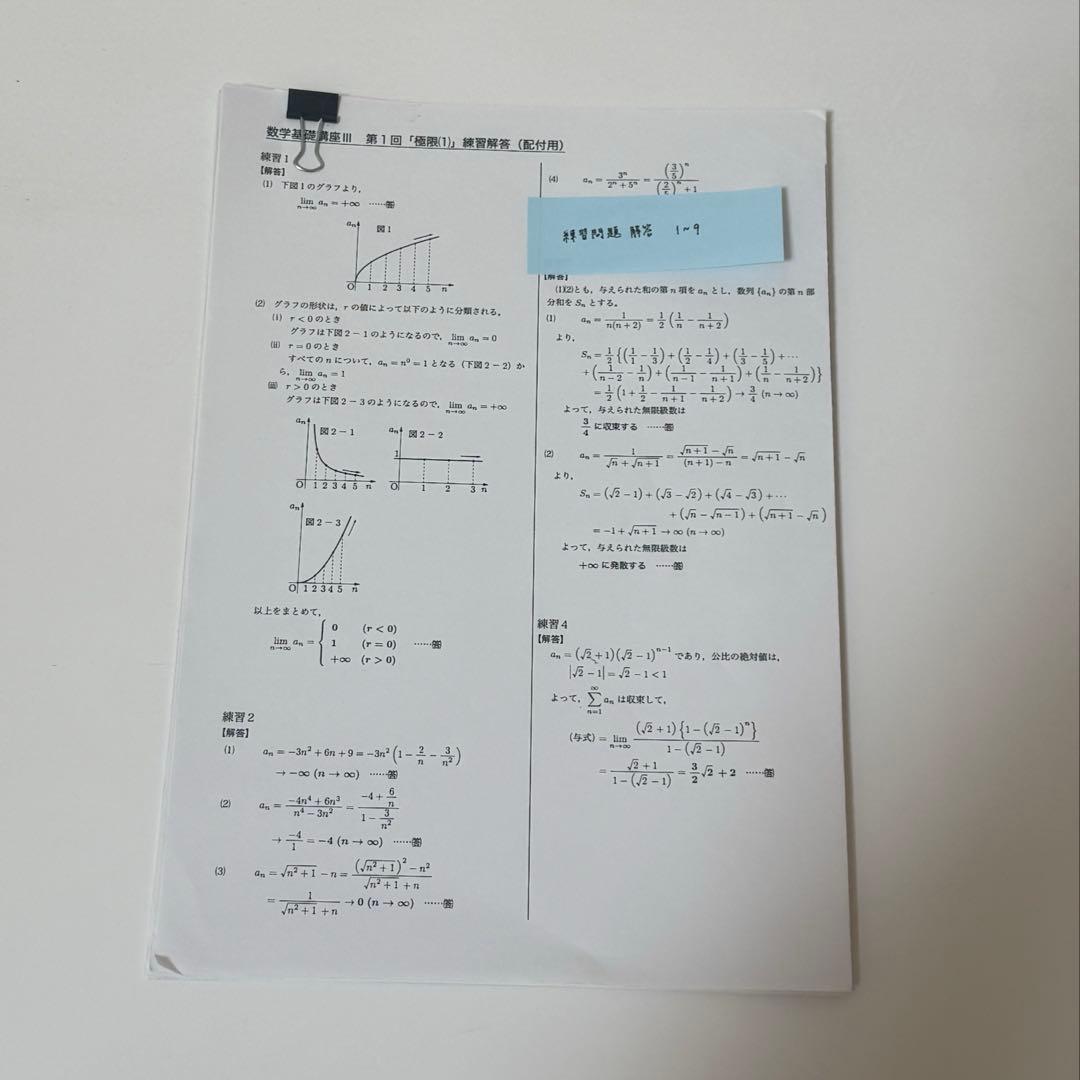 数学基礎講座Ⅲ 第1回「極限⑴」練習解答(配付用)
練習1
【解答】
⑴ 下図1のグラフより,
lim_{n→∞} a_n = +∞ ……㊎
図1
a_n
O 1 2 3 4 5 n
⑵ グラフの形状は, r の値によって以下のように分類される。
(ⅰ) r < 0 のとき
グラフは下図2-1のようになるので, lim_{n→∞} a_n = 0
(ⅱ) r = 0 のとき
すべての n について, a_n = n^0 = 1 となる(下図2-2)か
ら, lim_{n→∞} a_n = 1
(ⅲ) r > 0 のとき
グラフは下図2-3のようになるので, lim_{n→∞} a_n = +∞
a_n 図2-1
O 1 2 3 4 5 n
a_n 図2-2
1
O 1 2 3 n
a_n
図2-3
O 1 2 3 4 5 n
以上をまとめて,
lim_{n→∞} a_n = { 0 (r < 0)
1 (r = 0) ……答
+∞ (r > 0)
練習2
【解答】
⑴ a_n = -3n^2 + 6n + 9 = -3n^2 (1 - 2/n - 3/n^2)
→ -∞ (n → ∞) ……答
⑵ a_n = (-4n^4 + 6n^3)/(n^4 - 3n^2) = (-4 + 6/n)/(1 - 3/n^2)
→ -4/1 = -4 (n → ∞) ……答
⑶ a_n = √(n^2+1) - n = ((√(n^2+1))^2 - n^2)/(√(n^2+1) + n)
= 1/(√(n^2+1) + n) → 0 (n → ∞) ……答
⑷ a_n = 3^n/(2^n + 5^n) = (3/5)^n/((2/5)^n + 1)
練習問題 解答 1~9
【解答】
⑴⑵とも, 与えられた和の第 n 項を a_n とし, 数列 {a_n} の第 n 部
分和を S_n とする。
⑴ a_n = 1/(n(n+2)) = 1/2 (1/n - 1/(n+2))
より,
S_n = 1/2 {(1/1 - 1/3) + (1/2 - 1/4) + (1/3 - 1/5) + …
+ (1/(n-2) - 1/n) + (1/(n-1) - 1/(n+1)) + (1/n - 1/(n+2))}
= 1/2 (1 + 1/2 - 1/(n+1) - 1/(n+2)) → 3/4 (n → ∞)
よって, 与えられた無限級数は
3/4 に収束する ……答
⑵ a_n = 1/(√n + √(n+1)) = (√(n+1) - √n)/((n+1) - n) = √(n+1) - √n
より,
S_n = (√2 - 1) + (√3 - √2) + (√4 - √3) + …
+ (√n - √(n-1)) + (√(n+1) - √n)
= -1 + √(n+1) → ∞ (n → ∞)
よって, 与えられた無限級数は
+∞ に発散する ……答
練習4
【解答】
a_n = (√2 + 1)(√2 - 1)^{n-1} であり, 公比の絶対値は,
|√2 - 1| = √2 - 1 < 1
よって, Σ_{n=1}^{∞} a_n は収束して,
(与式) = lim_{n→∞} (√2 + 1){1 - (√2 - 1)^n}/(1 - (√2 - 1))
= (√2 + 1)/(1 - (√2 - 1)) = 3/2 √2 + 2 ……答